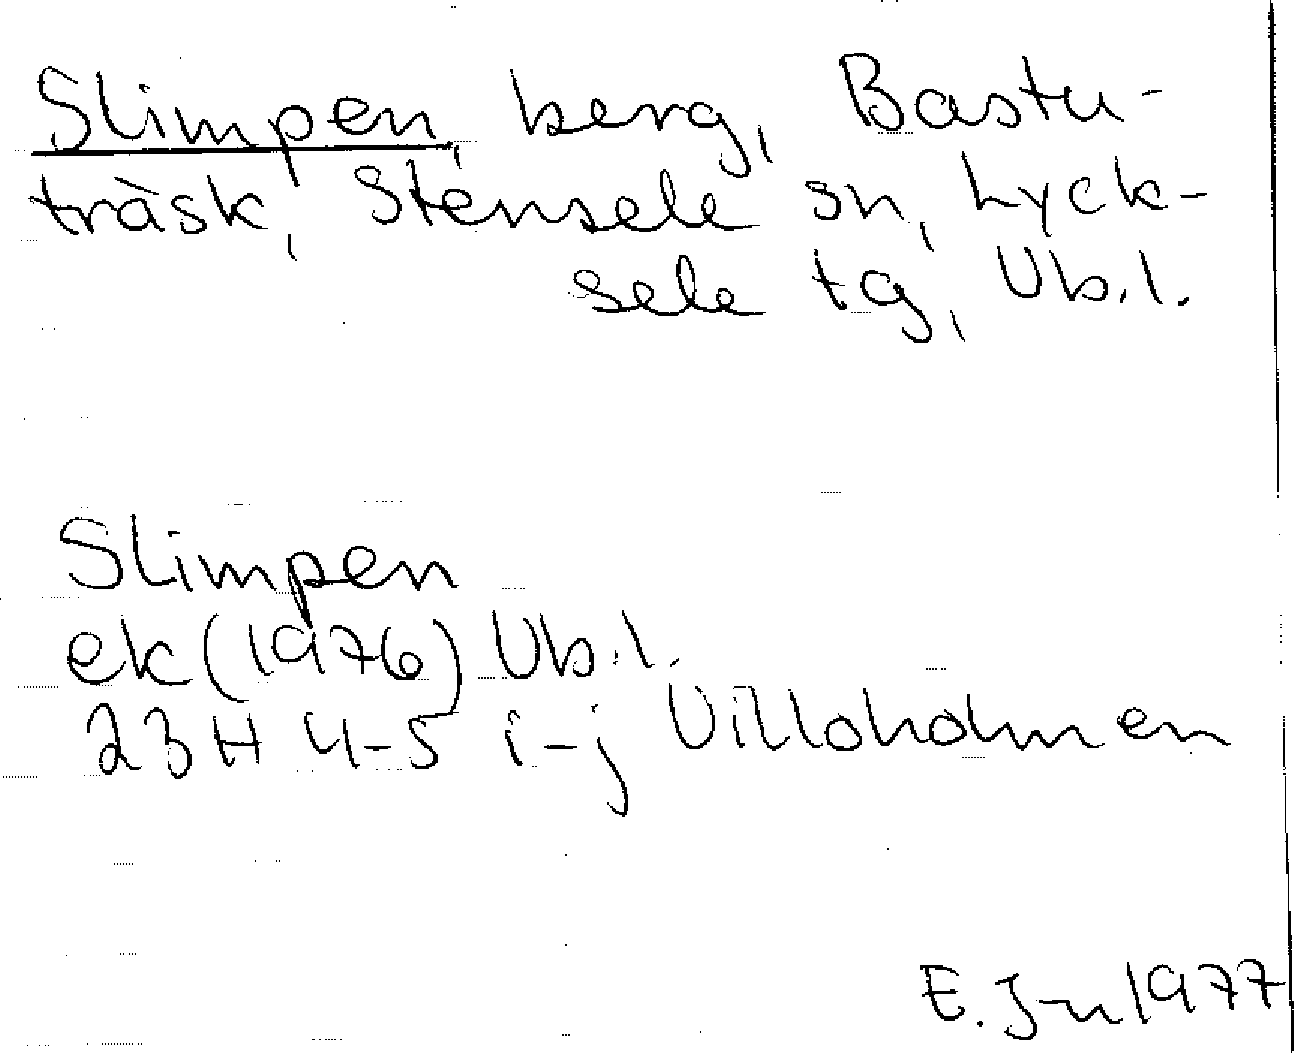 Slimpen, berg, Bastu-
träsk, Stensele sn, Lyck-
sele tg, Vb.l.
Slimpen
ek (1976) Vb.l.
23H 4-5 i-j Villoholmen
E. J-n 1977